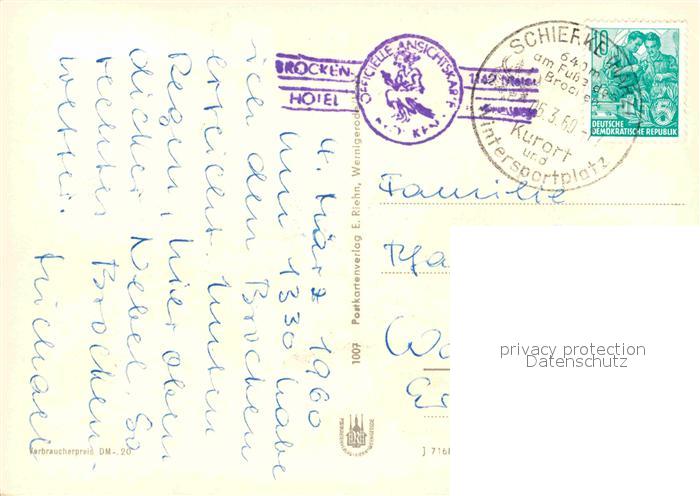 4. März 1960
Um 1330 habe
ich den Brocken
erreicht. Unten
Regen, hier oben
dicker Nebel. So
rechtes Brocken-
wetter.
Michael
BROCKEN-
HOTEL
OFFICIELLE ANSICHTSKARTE
1142 Meter
SCHIERKE HARZ
640 m
am Fuße des
Brocken
5.3.60
Kurort
und
Wintersportplatz
10
DEUTSCHE
DEMOKRATISCHE REPUBLIK
5
Familie
1007 Postkartenverlag E. Riehn, Wernigerode
privacy protection
Datenschutz
Verbraucherpreis DM -.20
J 716